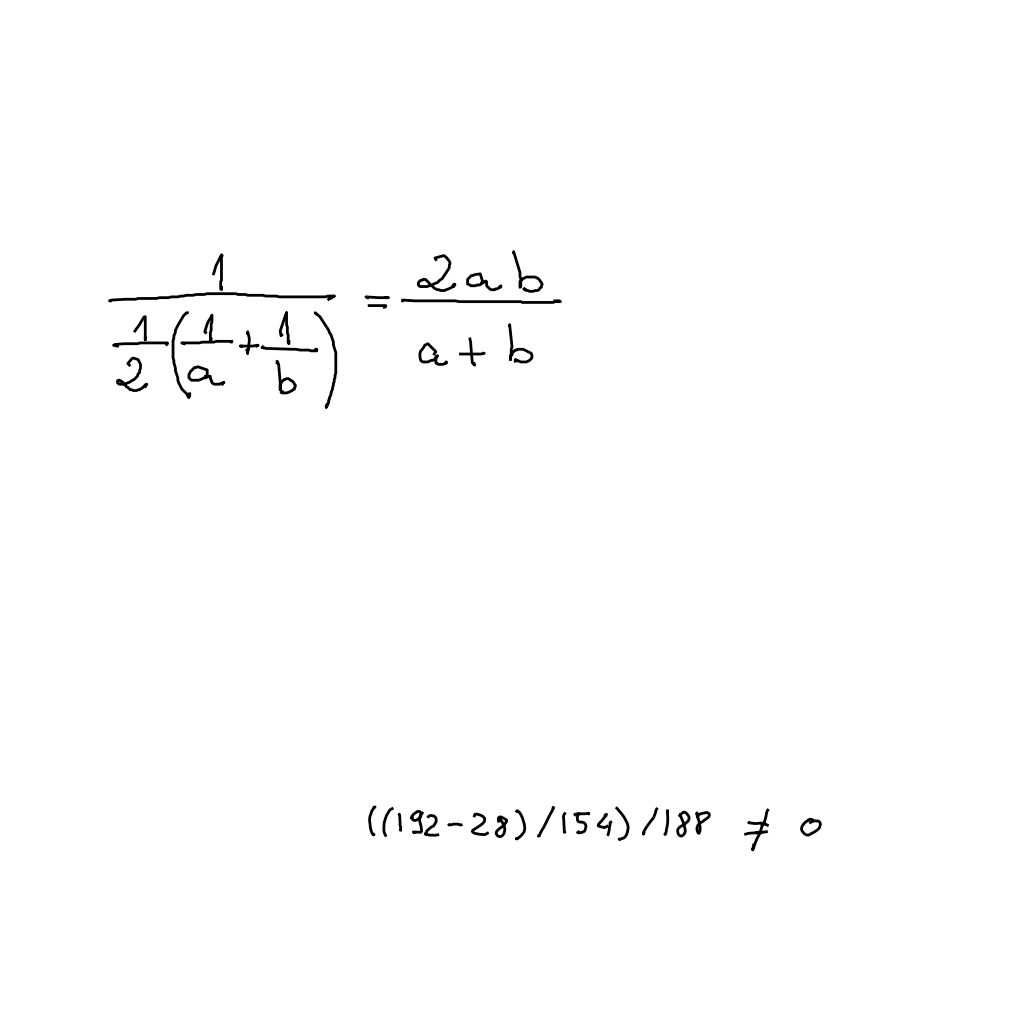 \frac{1}{\frac{1}{2}\left(\frac{1}{a}+\frac{1}{b}\right)}=\frac{2ab}{a+b}
((192-28)/154)/188 ≠ 0